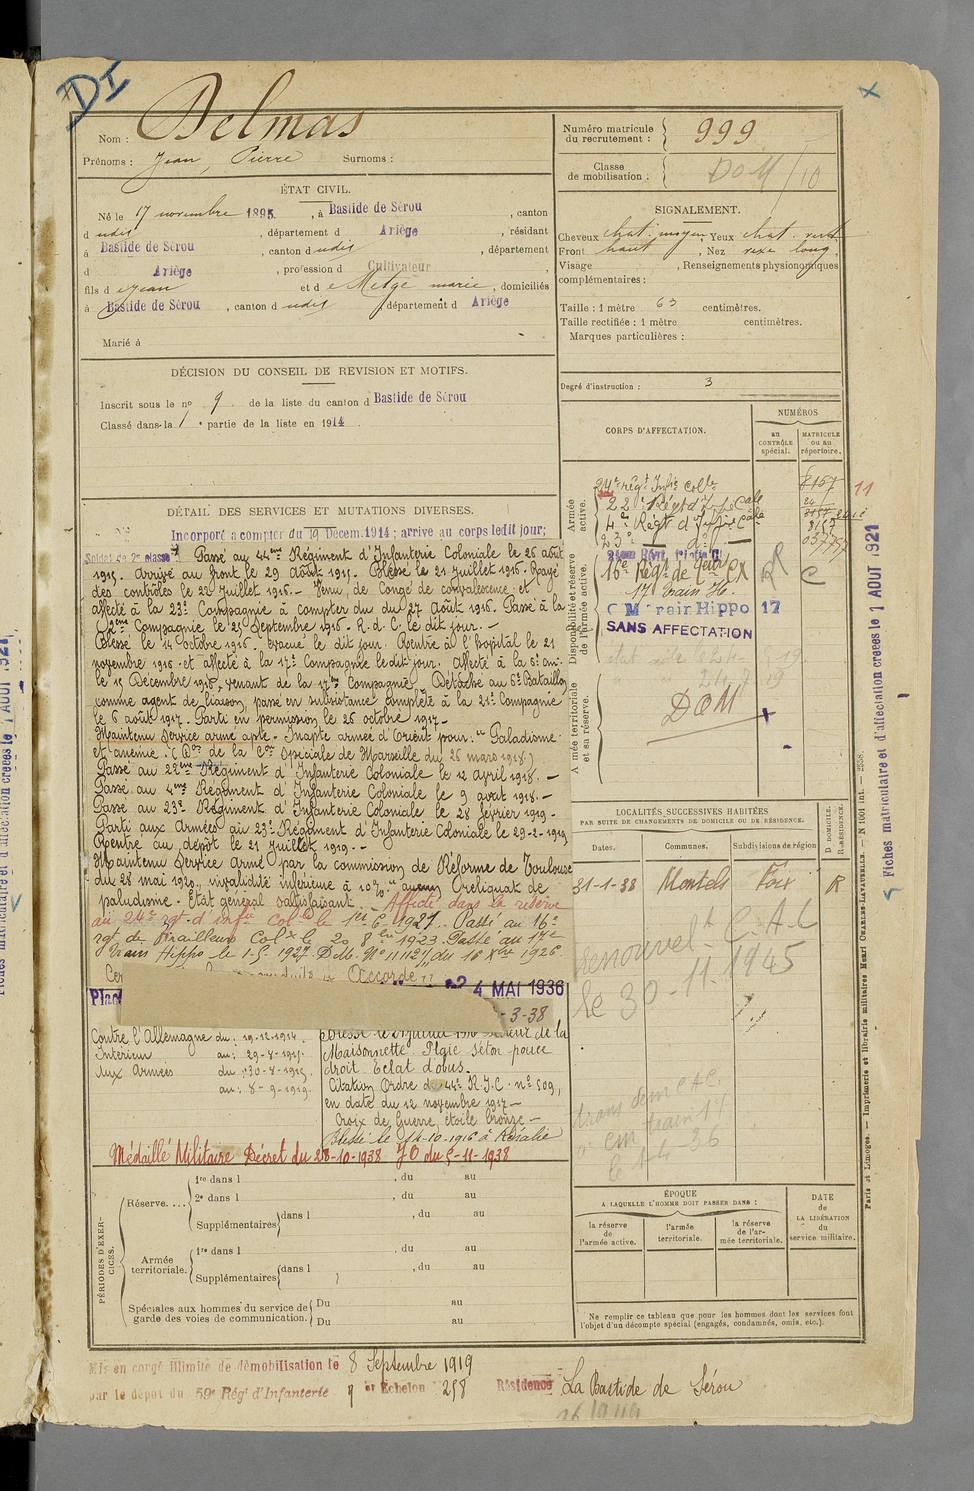 DI
Nom : Delmas
Prénoms : Jean, Pierre Surnoms :
ÉTAT CIVIL.
Né le 17 novembre 1895, à Bastide de Sérou, canton
d udit, département d Ariège, résidant
à Bastide de Sérou, canton d udit, département
d Ariège, profession d Cultivateur
fils d e Jean et d e Metge marie, domiciliés
à Bastide de Sérou, canton d udit, département d Ariège
Marié à
DÉCISION DU CONSEIL DE REVISION ET MOTIFS.
Inscrit sous le n° 9 de la liste du canton d Bastide de Sérou
Classé dans la 1re partie de la liste en 1914.
DÉTAIL DES SERVICES ET MUTATIONS DIVERSES.
Incorporé à compter du 19 Décem. 1914; arrivé au corps ledit jour;
Soldat de 2e classe. Passé au 44me Régiment d'Infanterie Coloniale le 26 août
1915. Arrivé au front le 29 Août 1915. Blessé le 21 Juillet 1916. Rayé
des contrôles le 22 Juillet 1916. - Venu de Congé de convalescence et
affecté à la 23e Compagnie à compter du du 27 Août 1916. Passé à la
2me Compagnie le 21 Septembre 1916. R.d.C. le dit jour. -
Blessé le 14 octobre 1916. évacué le dit jour. Rentré à l'hôpital le 21
novembre 1916 et affecté à la 17e Compagnie ledit jour. Affecté à la
le 15 Décembre 1916, venant de la 17me Compagnie. Détaché au 6e Bataillon
comme agent de liaison, passe en subsistance complète à la 21e Compagnie
le 6 août 1917. Parti en permission le 26 octobre 1917 -
Maintenu Service armé apte - Inapte armée d'Orient pour: " Paludisme
et anémie. (Don de la Con Spéciale de Marseille du 26 mars 1918.)
Passé au 22me Régiment d'Infanterie Coloniale le 12 Avril 1918. -
Passé au 4me Régiment d'Infanterie Coloniale le 9 août 1918. -
Passé au 23e Régiment d'Infanterie Coloniale le 28 février 1919 -
Parti aux Armées au 23e Régiment d'Infanterie Coloniale le 29-2-1919
Rentré au dépôt le 21 juillet 1919. -
Maintenu Service Armé par la commission de Réforme de Toulouse
du 28 mai 1920, invalidité inférieure à 10% " aucun reliquat de
paludisme - Etat général satisfaisant. - Affecté dans la réserve
au 24e rgt d'infie Colle le 1er 6 1921. Passé au 16e
rgt de Tirailleurs Colx le 20 8bre 1923. Passé au 17e
Train Hippo le 1-5-1927. D.M. N° 11112/1 du 16 Xbre 1926.
Accordé
24 MAI 1936
Plac
-3-38
Contre l'Allemagne du: 19-12-1914
Intérieur au: 29-8-1915
Aux Armées du: 30-8-1915
au: 8-9-1919
Blessé le 21 juillet 1916
Maisonnette. Plaie séton pouce
droit. Eclat d'obus.
Citation Ordre du 44e R.I.C. n° 509,
en date du 12 novembre 1917 -
Croix de Guerre étoile bronze -
Blessé le 14-10-1916 à
Médaillé Militaire Décret du 28-10-1938 JO du 5-11-1938
PÉRIODES D'EXERCICES.
Réserve....
1re dans l , du au
2e dans l , du au
Supplémentaires dans l , du au
Armée territoriale.
1re dans l , du au
Supplémentaires dans l , du au
Spéciales aux hommes du service de garde des voies de communication.
Du au
Du au
Mis en congé illimité de démobilisation le 8 Septembre 1919
par le dépôt du 59e Rég' d'Infanterie 9 er Echelon 258 Résidence La Bastide de Sérou
Numéro matricule du recrutement : 999
Classe de mobilisation : DOM/10
SIGNALEMENT.
Cheveux chat. moyen, Yeux chat. verd.
Front haut, Nez rexe long,
Visage , Renseignements physionomiques
complémentaires :
Taille : 1 mètre 63 centimètres.
Taille rectifiée : 1 mètre centimètres.
Marques particulières :
Degré d'instruction : 3
CORPS D'AFFECTATION.
NUMÉROS
au CONTRÔLE spécial.
MATRICULE ou au répertoire.
Armée active.
24e régt Infie colle
22e Régt d'Infie Cale
4e Régt d'Infie Cale
23e
Disponibilité et réserve de l'armée active.
16e Régt de
17 Train H.
17
SANS AFFECTATION
C
Armée territoriale et sa réserve.
DOM
LOCALITÉS SUCCESSIVES HABITÉES
PAR SUITE DE CHANGEMENTS DE DOMICILE OU DE RÉSIDENCE.
Dates. Communes. Subdivisions de région
D. DOMICILE. R. RÉSIDENCE.
31-1-38 Montels Foix R
renouvelt C.A.C
le 30-11-1945
ÉPOQUE
A LAQUELLE L'HOMME DOIT PASSER DANS :
la réserve de l'armée active.
l'armée territoriale.
la réserve de l'armée territoriale.
DATE de LA LIBÉRATION du service militaire.
Ne remplir ce tableau que pour les hommes dont les services font
l'objet d'un décompte spécial (engagés, condamnés, omis, etc.).
11
Fiches matriculaire et d'affectation créées le 1 AOUT 1921
Paris et Limoges. — Imprimerie et librairie militaires Henri CHARLES-LAVAUZELLE. — N° 1001 int. — 2558.